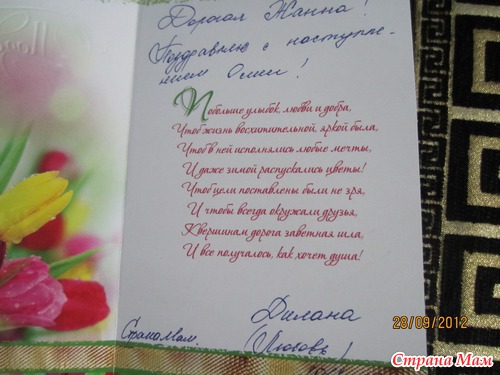 Дорогая Жанна!
Поздравляю с наступле-
нием Осени!
Побольше улыбок, любви и добра,
Чтоб жизнь восхитительной, яркой была,
Чтоб в ней исполнялись любые мечты,
И даже зимой распускались цветы!
Чтоб цели поставлены были не зря,
И чтобы всегда окружали друзья,
К вершинам дорога заветная шла,
И все получалось, как хочет душа!
Дилана
СтранаМам.
(Любовь)
28/09/2012
Страна Мам